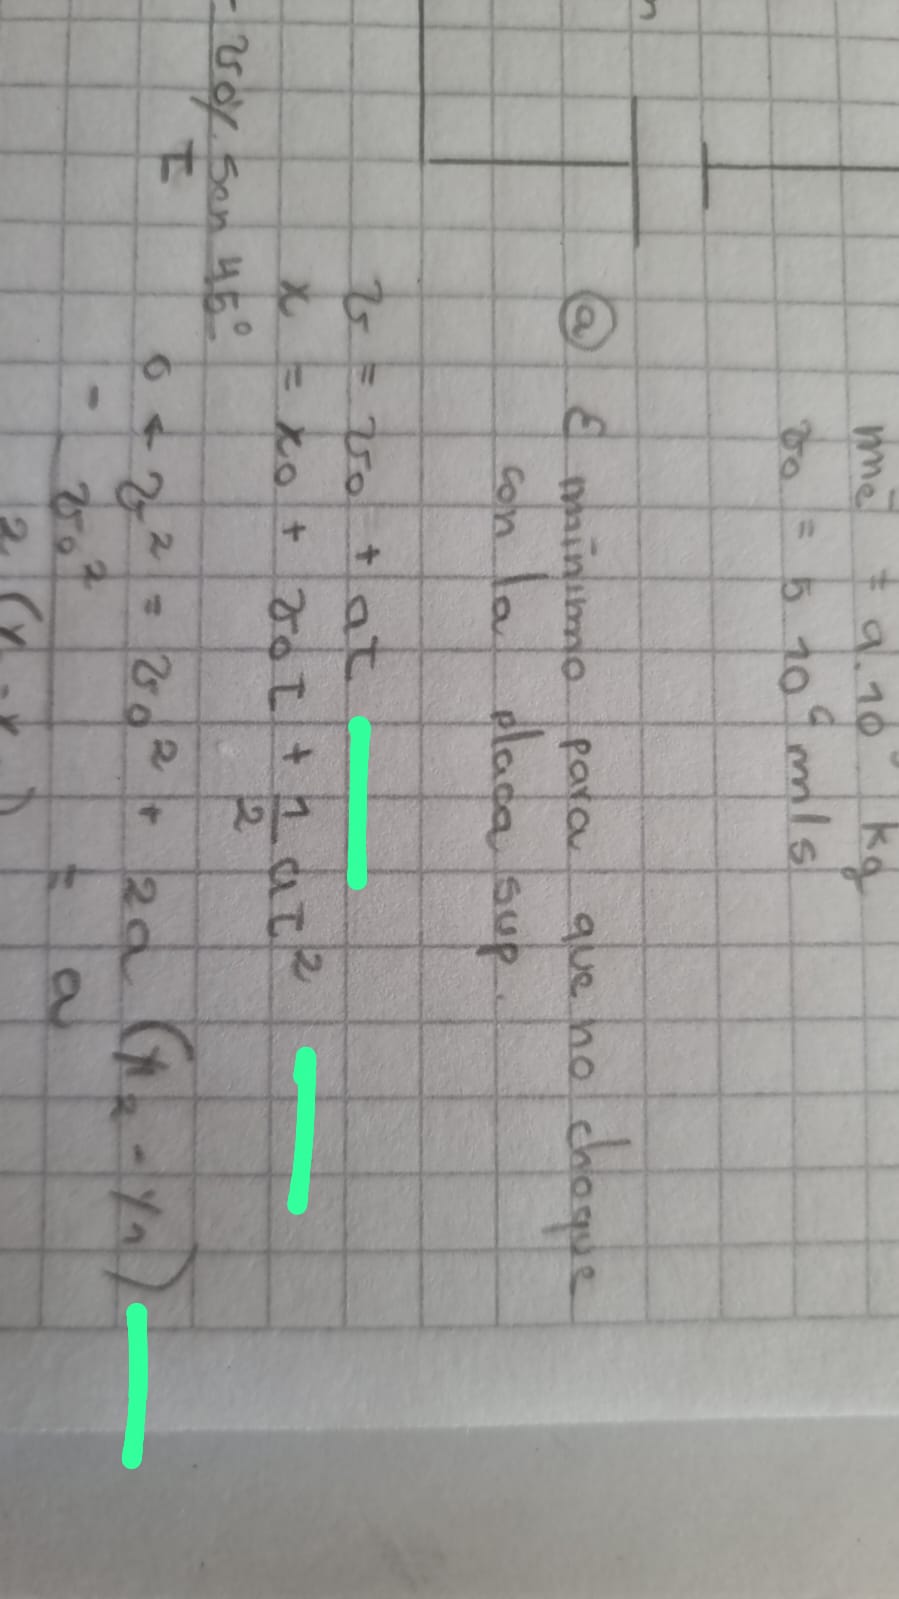 me = 9.10 kg
v0 = 5 10⁶ m/s
ⓐ E mínimo para que no choque
con la placa sup.
v = v0 + at
x = x0 + v0t + 1/2 at²
- v0y. sen 45°
t
0 ← v² = v0² + 2a (y2 - y1)
- v0² = a
2 (y - y )